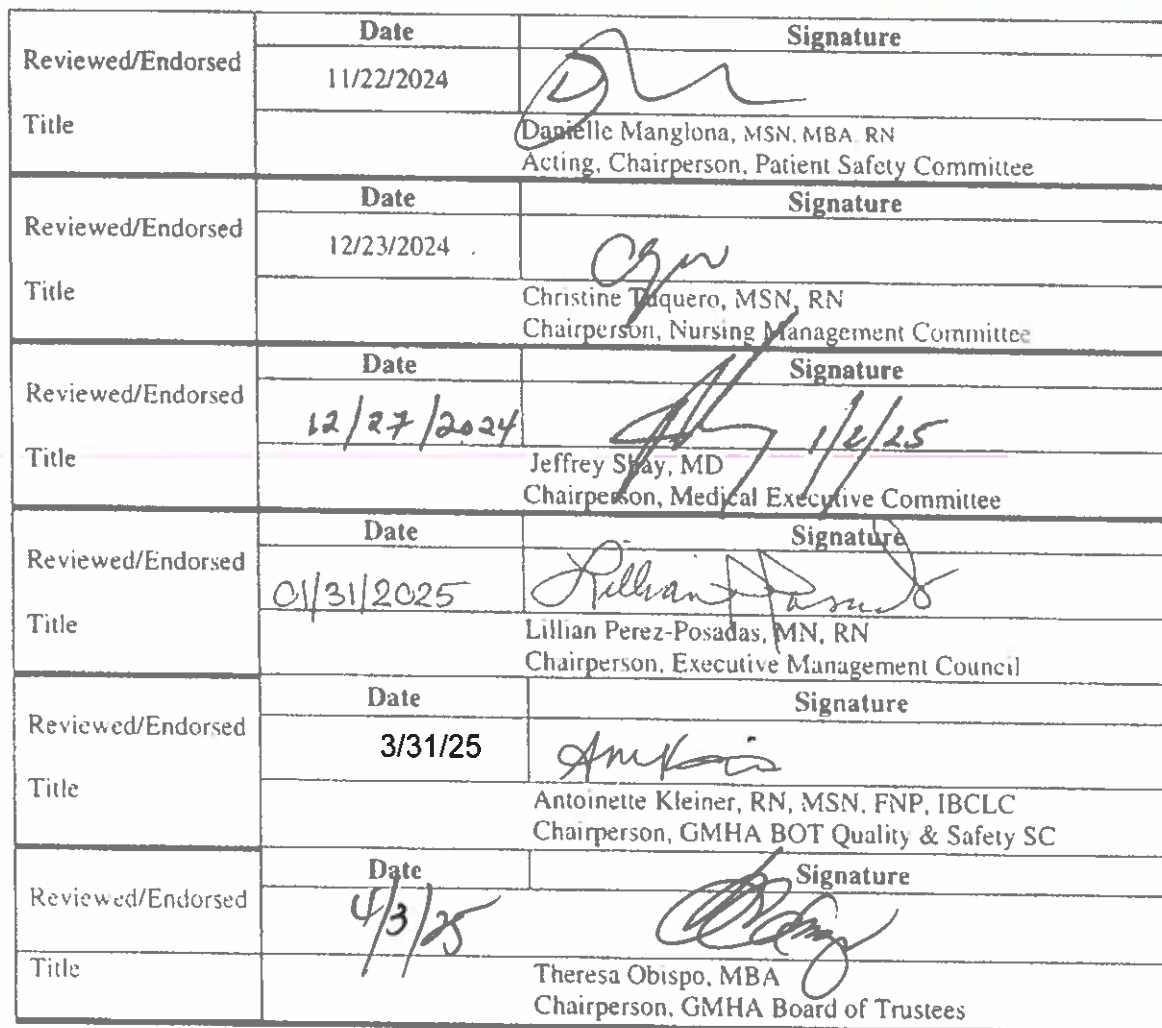 Date Signature
Reviewed/Endorsed
11/22/2024
Title
Danielle Manglona, MSN, MBA, RN
Acting, Chairperson, Patient Safety Committee
Date Signature
Reviewed/Endorsed
12/23/2024
Title
Christine Tuquero, MSN, RN
Chairperson, Nursing Management Committee
Date Signature
Reviewed/Endorsed
12/27/2024 1/2/25
Title
Jeffrey Shay, MD
Chairperson, Medical Executive Committee
Date Signature
Reviewed/Endorsed
01/31/2025 Lillian
Title
Lillian Perez-Posadas, MN, RN
Chairperson, Executive Management Council
Date Signature
Reviewed/Endorsed
3/31/25
Title
Antoinette Kleiner, RN, MSN, FNP, IBCLC
Chairperson, GMHA BOT Quality & Safety SC
Date Signature
Reviewed/Endorsed
4/3/25
Title
Theresa Obispo, MBA
Chairperson, GMHA Board of Trustees